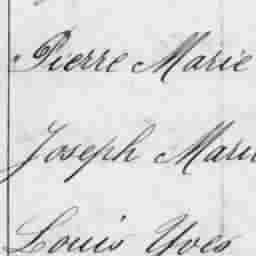 Pierre Marie
Joseph Marie
Louis Yves